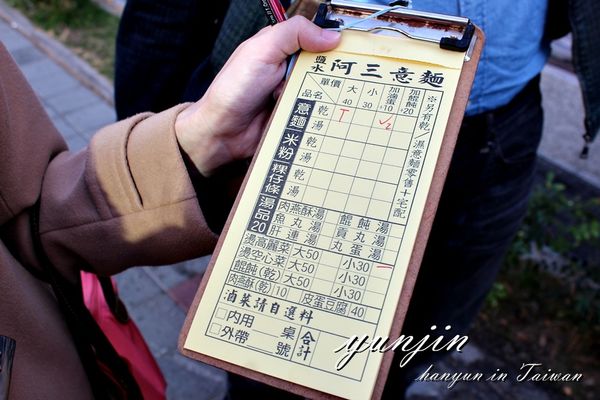 鹽水 阿三意麵
單價 大40 小30 加滷蛋+10 加餛飩+20
品名
意麵 乾
湯
米粉 乾
湯
粿仔條 乾
湯
湯品20 肉燕酥湯 餛飩湯
魚丸湯 貢丸湯
肝連湯 丸蛋湯
燙高麗菜 大50 小30
燙空心菜 大50 小30
餛飩(乾) 大50 小30
肉燕酥(乾)10 皮蛋豆腐40
滷菜請自選料
□內用 桌號 合計
□外帶
※另有乾、濕意麵零售+宅配
yunjin
hanyun in Taiwan